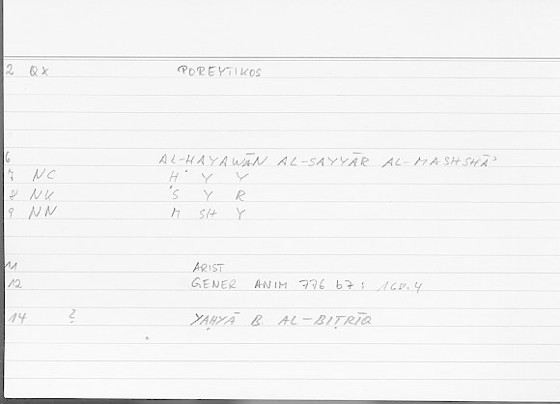 2 QX POREYTIKOS
6 AL-HAYAWĀN AL-SAYYĀR AL-MASHSHĀʾ
7 NC H Y Y
8 NK S Y R
9 NN M SH Y
11 ARIST
12 GENER ANIM 776 b7: 168.4
14 ? YAḤYĀ B. AL-BIṬRĪQ